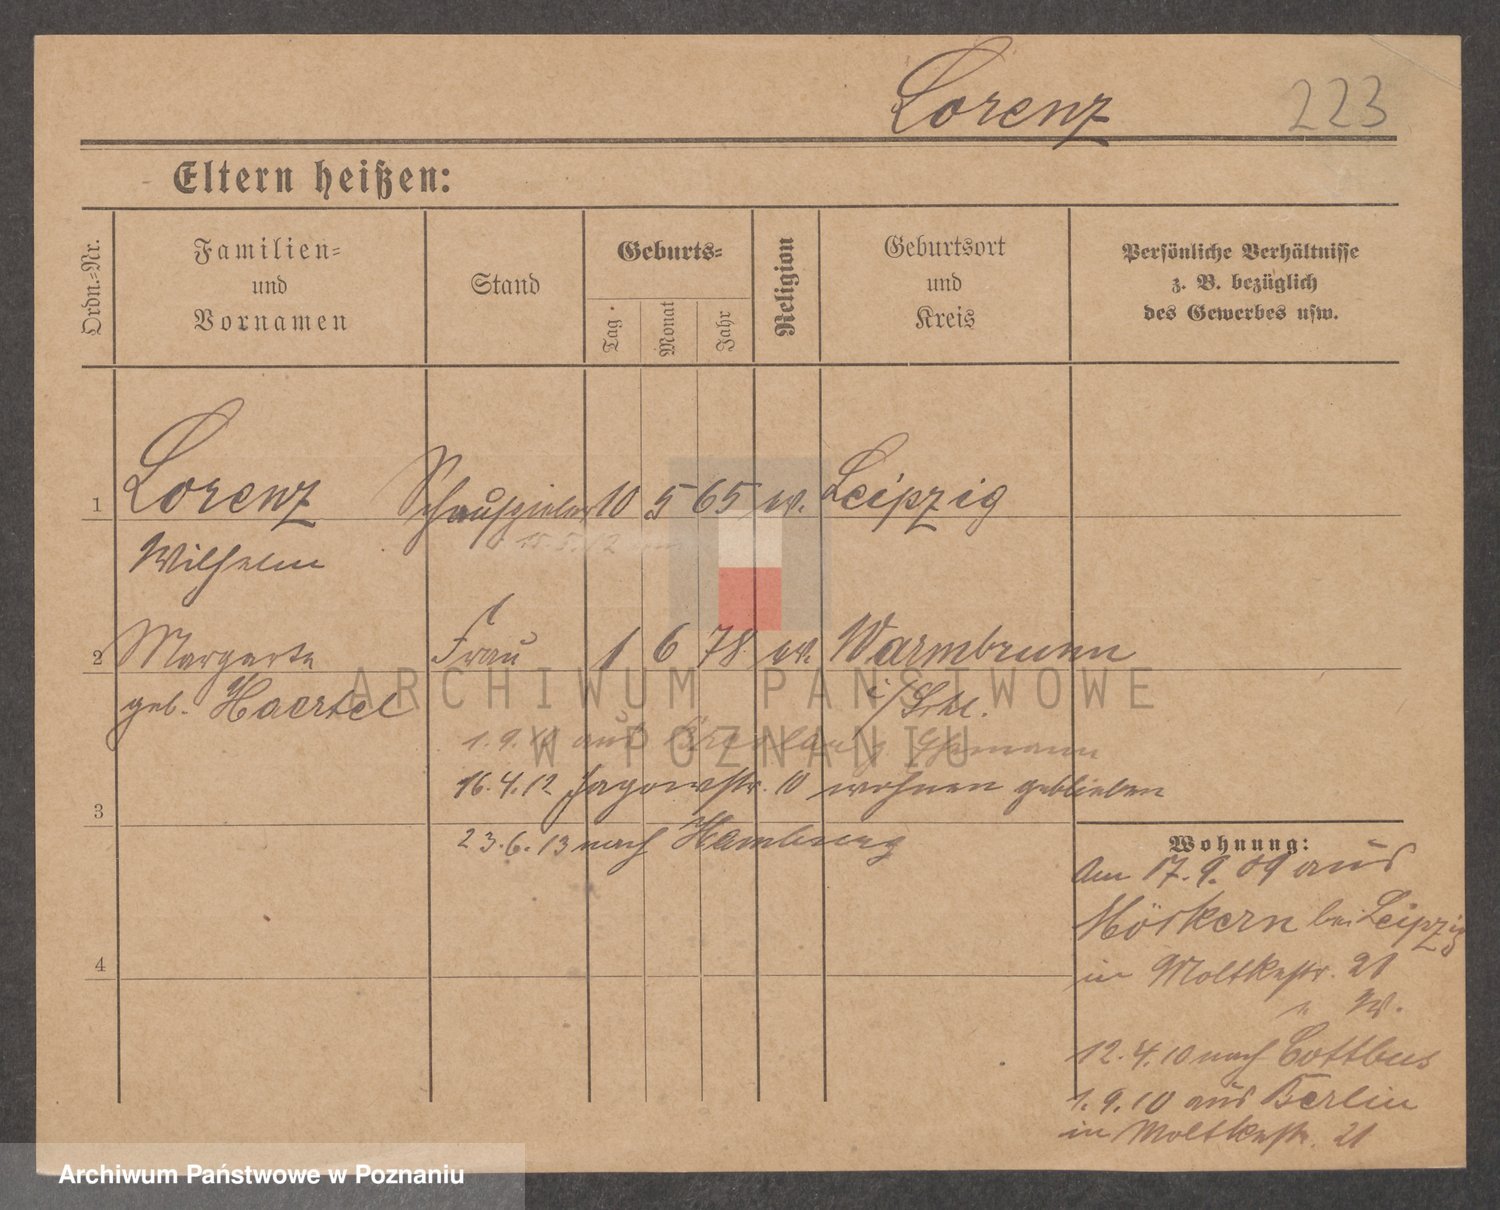 Lorenz 223
Eltern heißen:
Ordn.=Nr.
Familien=
und
Vornamen
Stand
Geburts=
Tag
Monat
Jahr
Religion
Geburtsort
und
Kreis
Persönliche Verhältnisse
z. B. bezüglich
des Gewerbes usw.
1 Lorenz Schauspieler 10 5 65 ev. Leipzig
Wilhelm
2 Margarete Frau 1 6 78 ev. Warmbrunn
geb. Haertel i/Schl.
ARCHIWUM PAŃSTWOWE
W POZNANIU
1.9. aus Breslau z. Ehemann
16.4.12 Jagowstr. 10 wohnen geblieben
3
23.6.13 nach Hamburg
Wohnung:
Am 17.9.09 aus
Möckern bei Leipzig
in Moltkestr. 21
4
12.4.10 nach Cottbus
1.9.10 aus Berlin
in Moltkestr. 21
Archiwum Państwowe w Poznaniu